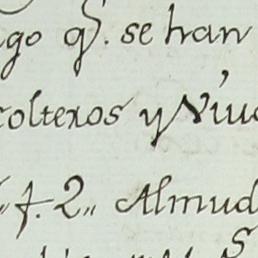 go qͤ. se han
colteros y Viu
" f. 2,, Almud